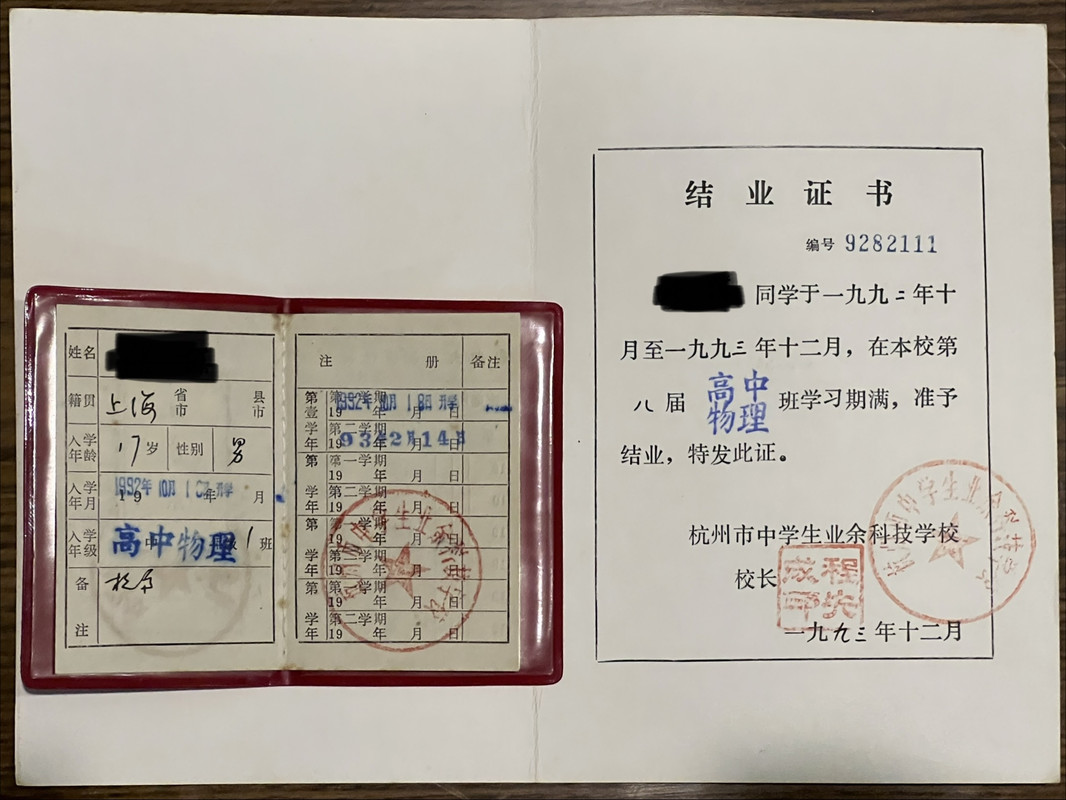 姓名
籍贯 上海 省市 县市
入学年龄 17岁 性别 男
入学年月 1992年10月18日开学 19 年 月
入学年级 高中物理 1班
备注
注册 备注
第壹学年 第一学期 19 年 月 日 1992年10月18日开学
第二学期 19 年 月 日
第 学年 第一学期 19 年 月 日
第二学期 19 年 月 日
第 学年 第一学期 19 年 月 日
第二学期 19 年 月 日
第 学年 第一学期 19 年 月 日
第二学期 19 年 月 日
结业证书
编号 9282111
同学于一九九二年十
月至一九九三年十二月，在本校第
八届 高中物理 班学习期满，准予
结业，特发此证。
杭州市中学生业余科技学校
校长
一九九三年十二月